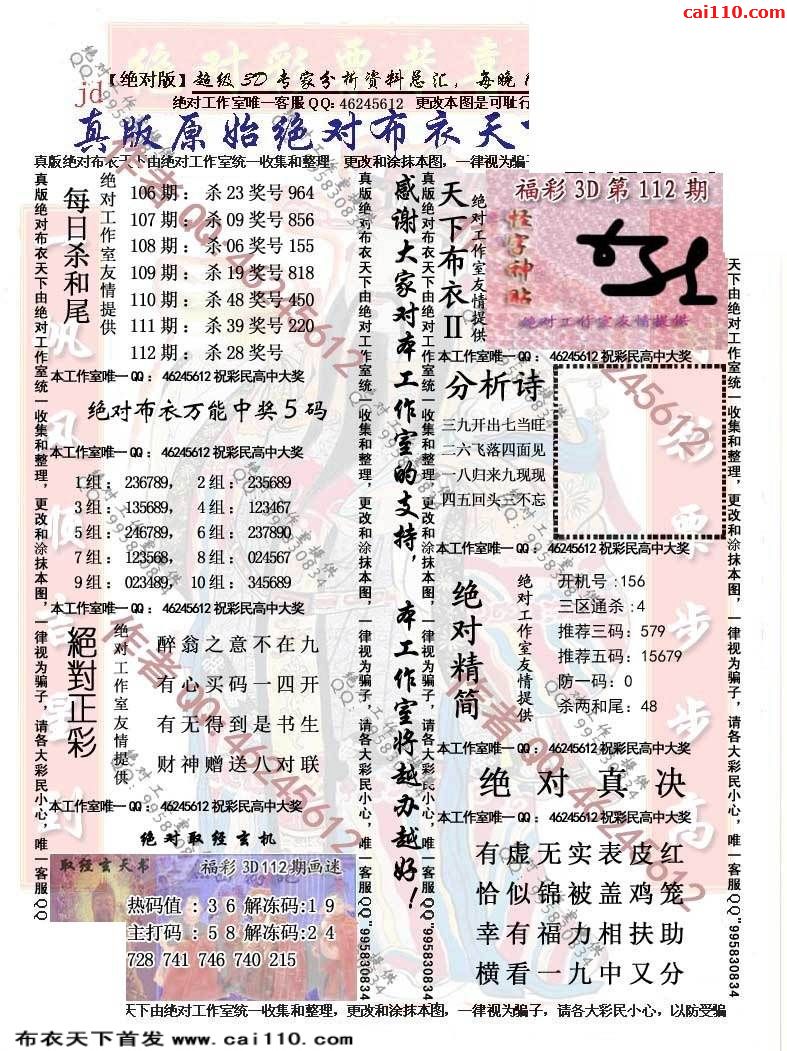 cai110.com
【绝对版】超级3D专家分析资料总汇，每晚
jd
绝对工作室唯一客服QQ: 46245612 更改本图是可耻行
真版原始绝对布衣天
真版绝对布衣天下由绝对工作室统一收集和整理，更改和涂抹本图，一律视为骗
真版绝对布衣天下由绝对工作室统一收集和整理，更改和涂抹本图，一律视为骗子，请各大彩民小心，唯一客服QQ
每日杀和尾
绝对工作室友情提供
106期：杀23奖号964
107期：杀09奖号856
108期：杀06奖号155
109期：杀19奖号818
110期：杀48奖号450
111期：杀39奖号220
112期：杀28奖号
本工作室唯一QQ：46245612祝彩民高中大奖
绝对布衣万能中奖5码
本工作室唯一QQ：46245612祝彩民高中大奖
1组：236789， 2组：235689
3组：135689， 4组：123467
5组：246789， 6组：237890
7组：123568， 8组：024567
9组：023489， 10组：345689
本工作室唯一QQ：46245612祝彩民高中大奖
絕對正彩
绝对工作室友情提供
醉翁之意不在九
有心买码一四开
有无得到是书生
财神赠送八对联
本工作室唯一QQ：46245612祝彩民高中大奖
绝对取经玄机
取经玄天书
福彩3D112期画迷
热码值：36解冻码：19
主打码：58解冻码：24
728 741 746 740 215
真版绝对布衣天下由绝对工作室统一收集和整理，更改和涂抹本图，一律视为骗子，请各大彩民小心，唯一客服QQ"995830834
感谢大家对本工作室的支持，本工作室将越办越好！
真版绝对布衣天下由绝对工作室统一收集和整理，更改和涂抹本图，一律视为骗子，请各大彩民小心，唯一客服QQ"995830834
天下布衣II
绝对工作室友情提供
福彩3D第112期
怪字神贴
绝对工作室友情提供
本工作室唯一QQ：46245612祝彩民高中大奖
分析诗
三九开出七当旺
二六飞落四面见
一八归来九现现
四五回头三不忘
本工作室唯一QQ：46245612祝彩民高中大奖
绝对精简
绝对工作室友情提供
开机号:156
三区通杀:4
推荐三码:579
推荐五码:15679
防一码:0
杀两和尾:48
本工作室唯一QQ：46245612祝彩民高中大奖
绝对真决
本工作室唯一QQ：46245612祝彩民高中大奖
有虚无实表皮红
恰似锦被盖鸡笼
幸有福力相扶助
横看一九中又分
天下由绝对工作室统一收集和整理，更改和涂抹本图，一律视为骗子，请各大彩民小心，唯一客服QQ"995830834
天下由绝对工作室统一收集和整理，更改和涂抹本图，一律视为骗子，请各大彩民小心，以防受骗
作者QQ:46245612
布衣天下首发 www.cai110.com